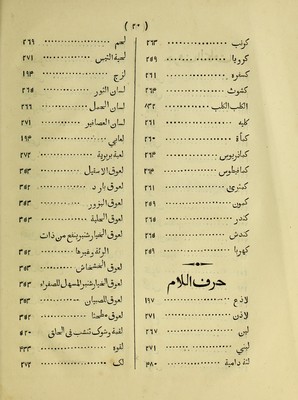 ( ٢٠ )
كرنب ٢٦٣
كرويا ٢٥٩
كسفره ٢٦١
كشوث ٢٦٤
الكلب الكلب ٥٣٢
كليه ٢٦١
كمأة ٢٦٠
كمادريوس ٢٦٤
كمافيطوس ٢٦٤
كمثرى ٢٦١
كمون ٢٥٩
كندر ٢٦٥
كندش ٢٦٥
كهربا ٢٥٩
حرف اللام
لاذع ١٩٧
لاذن ٢٧١
لبن ٢٦٧
لبنى ٢٧١
لثة دامية ٤٨٠
لحم ٢٦٩
لحية التيس ٢٧١
لزج ١٩٤
لسان الثور ٢٦٥
لسان الحمل ٢٦٦
لسان العصافير ٢٧١
لعابى ١٩٤
لعبة بربرية ٢٧٢
لعوق الاسقيل ٣٥٣
لعوق بارد ٣٥٢
لعوق البزور ٣٥٣
لعوق الحلبة ٣٥٣
لعوق الخيارشنبر ينفع من ذات
الرئة وغيرها ٣٥٢
لعوق الخشخاش ٣٥٣
لعوق الخيارشنبر المسهل للصفراء ٣٥٣
لعوق للصبيان ٣٥٣
لعوق مطفئا ٣٥٢
لقمة وشوك تنشب فى الحلق ٥٢٠
لقوه ٤٣٣
لك ٢٧٢